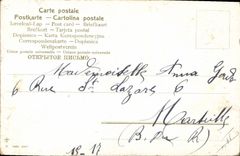 Carte postale
Postkarte - Cartolina postale
Levelezö-Lap - Post card - Briefkaart
Brefkort - Tarjeta postal
Dopisnice - Karta Korespondencyjna
Correspondenzkarte - Dopisnica
Weltpostverein
ОТКРЫТОЕ ПИСЬМО
Mademoiselle Anna
6 Rue St Lazare 6
Marseille
(B. du R)